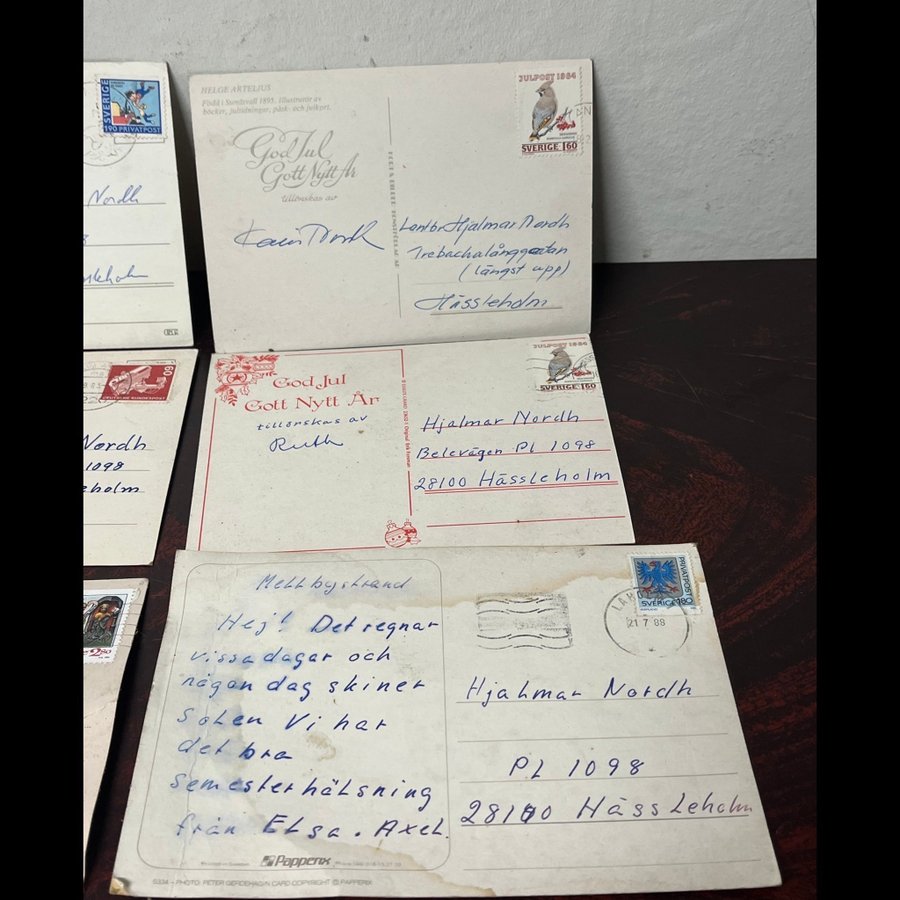 SVERIGE
190 PRIVATPOST
Nordh
HELGE ARTELIUS
Född i Sundsvall 1895. Illustratör av
böcker, jultidningar, påsk- och julkort.
God Jul
Gott Nytt År
tillönskas av
JULPOST 1984
SVERIGE 160
Lantbr Hjalmar Nordh
Trebackalånggatan
(längst upp)
Hässleholm
60
DEUTSCHE BUNDESPOST
Nordh
1098
eholm
God Jul
Gott Nytt År
tillönskas av
Ruth
JULPOST 1984
SVERIGE 160
Hjalmar Nordh
Belevägen Pl 1098
28100 Hässleholm
2.80
Mellbystrand
Hej! Det regnar
vissa dagar och
någon dag skiner
solen Vi har
det bra
semesterhälsning
från Elsa. Axel.
PRIVATPOST
SVERIGE 180
21 7 88
Hjalmar Nordh
Pl 1098
28100 Hässleholm
Papperix
PHOTO: PETER GERDEHAG/N CARD COPYRIGHT © PAPPERIX